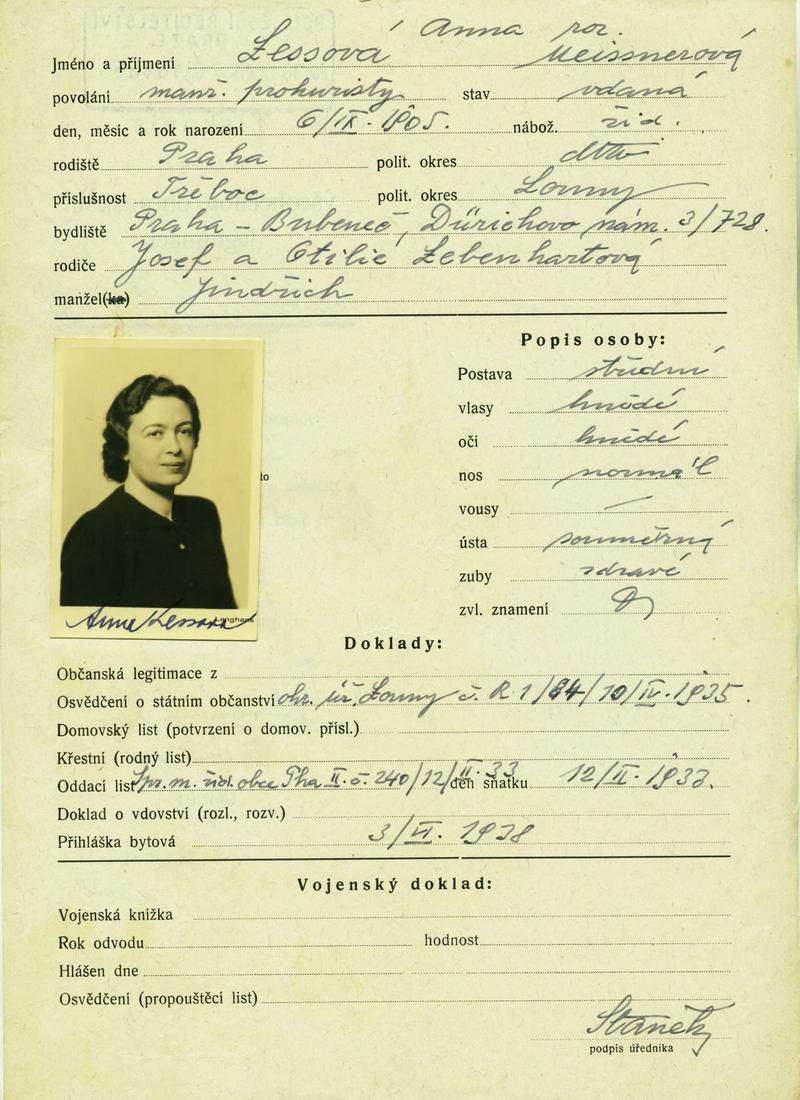 Jméno a příjmení Lessová Anna roz. Meissnerová
povolání manž. prokuristy stav vdaná
den, měsíc a rok narození 6/IX. 1905. nábož. žid.
rodiště Praha polit. okres dtto
příslušnost Třeboc polit. okres Louny
bydliště Praha - Bubeneč, Dürichovo nám. 3/728.
rodiče Josef a Otilie Lebenhartová
manžel(ka) Jindřich
Popis osoby:
Postava střední
vlasy hnědé
oči hnědé
nos normál
vousy —
ústa souměrný
zuby zdravé
zvl. znamení
to
Anna Lessová
Langhans
Doklady:
Občanská legitimace z
Osvědčení o státním občanství okr. úř. Louny č. R 1/84/10/IV. 1935.
Domovský list (potvrzení o domov. přísl.)
Křestní (rodný list)
Oddací list Spr. m. žid. obce Pha II. č. 240/12/II. 33 den sňatku 12/II. 1933.
Doklad o vdovství (rozl., rozv.)
Přihláška bytová 3/VI. 1938
Vojenský doklad:
Vojenská knížka
Rok odvodu hodnost
Hlášen dne
Osvědčení (propouštěcí list)
Staněk
podpis úředníka